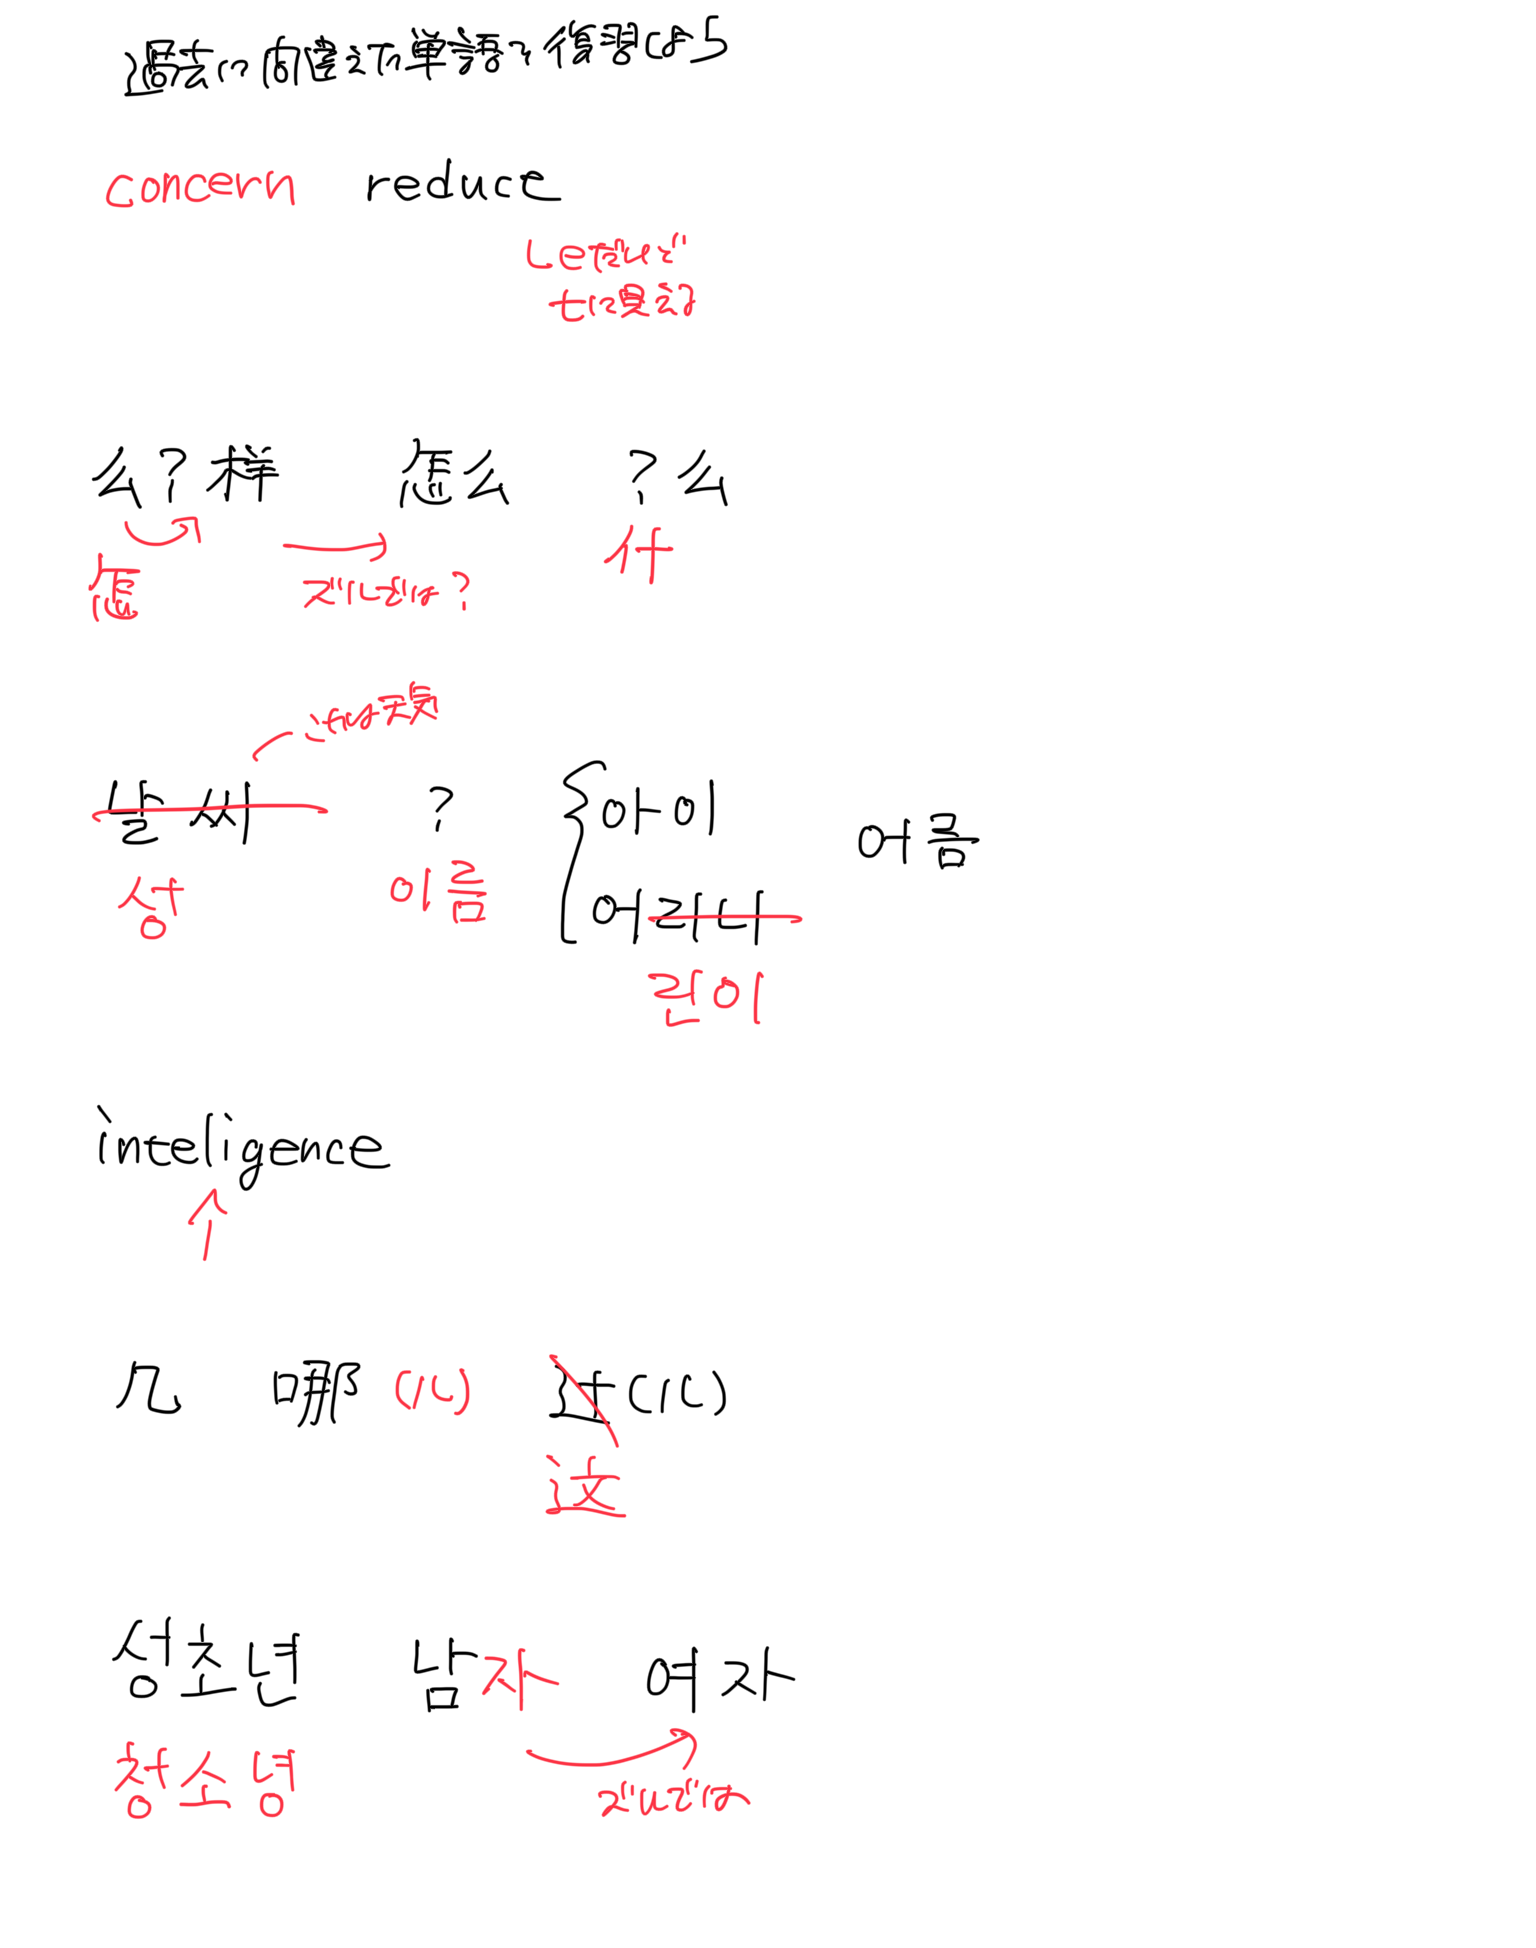 過去に間違えた単語を復習しよう
concern reduce
しeだけど
tに見える
么?样 怎么 ?么
怎 ズルでは? 什
これは天気
날씨 ? 아이 여름
성 이름 어리니
린이
inteligence
几 哪(儿) 过(儿)
这
성초년 남자 여자
청소녕 ズルでは